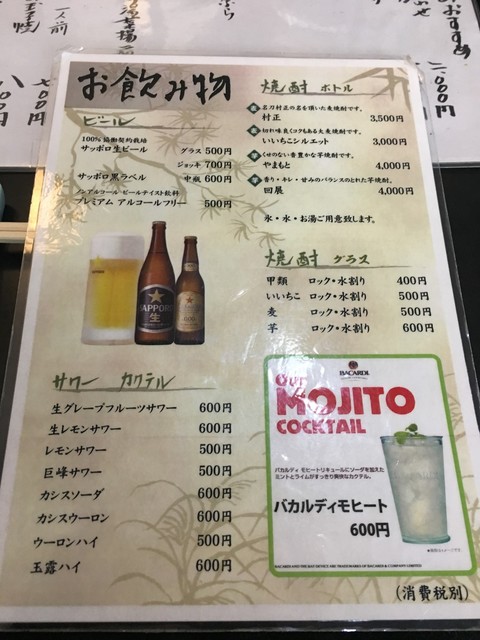 おすすめ
一人前
お飲み物
ビール
100%協働契約栽培
サッポロ生ビール グラス 500円
ジョッキ 700円
サッポロ黒ラベル 中瓶 600円
ノンアルコール ビールテイスト飲料
プレミアム アルコールフリー 500円
SAPPORO
生
サワー カクテル
生グレープフルーツサワー 600円
生レモンサワー 600円
レモンサワー 500円
巨峰サワー 500円
カシスソーダ 600円
カシスウーロン 600円
ウーロンハイ 500円
玉露ハイ 600円
焼酎 ボトル
麦 名刀村正の名を頂いた麦焼酎です。
村正 3,500円
麦 切れ味良くコクもある大麦焼酎です。
いいちこシルエット 3,000円
芋 くせのない香豊かな芋焼酎です。
やまもと 4,000円
芋 香り・キレ・甘みのバランスのとれた芋焼酎。
回展 4,000円
氷・水・お湯ご用意致します。
焼酎 グラス
甲類 ロック・水割り 400円
いいちこ ロック・水割り 500円
麦 ロック・水割り 500円
芋 ロック・水割り 600円
BACARDI
Our
MOJITO
COCKTAIL
バカルディ モヒートリキュールにソーダを加えた
ミントとライムがすっきり爽快なカクテル。
バカルディモヒート
600円
※写真はイメージです
BACARDI AND THE BAT DEVICE ARE TRADEMARKS OF BACARDI & COMPANY LIMITED
(消費税別)